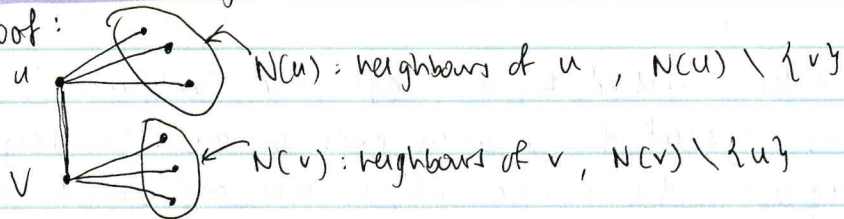 oof :
u N(u) : neighbours of u , N(u) \ {v}
v N(v) : neighbours of v, N(v) \ {u}